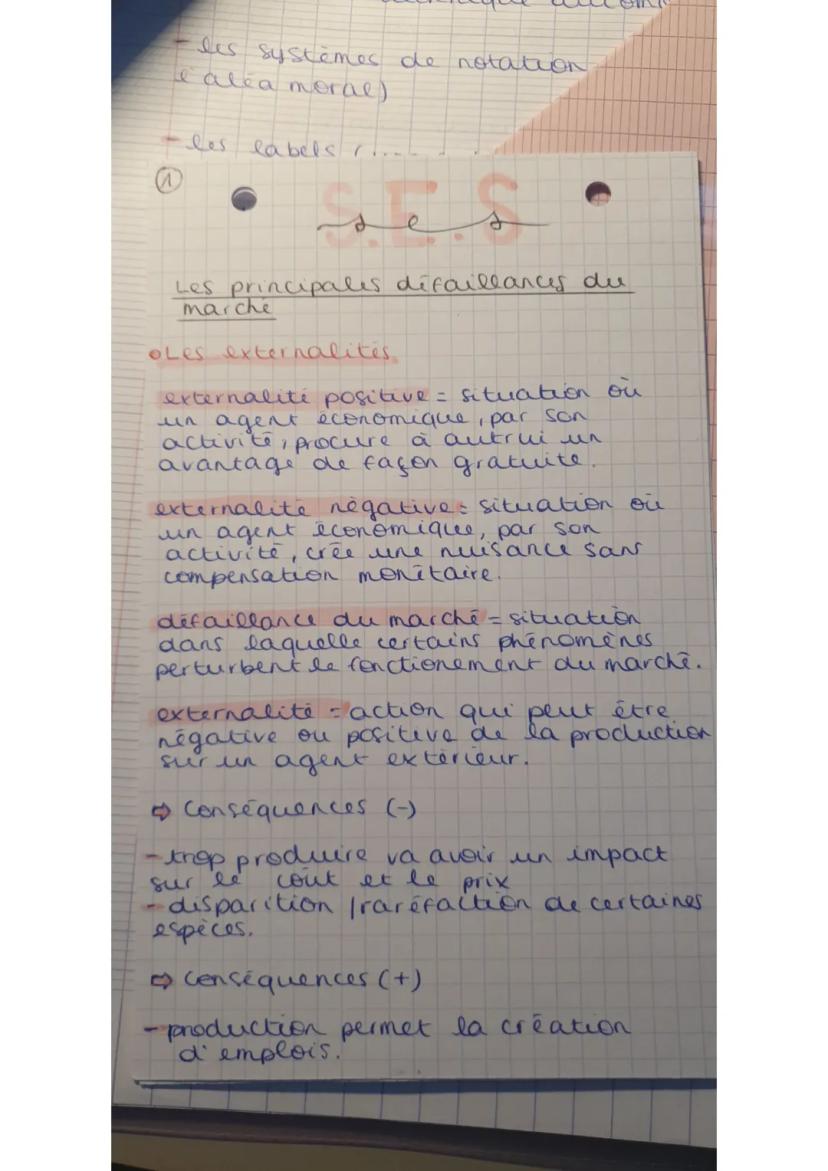 - les systèmes de notation
(aléa moral)
- les labels
1
S.E.S
s e s
Les principales défaillances du
marché
Les externalités.
externalité positive = situation où
un agent économique, par son
activité, procure à autrui un
avantage de façon gratuite.
externalité négative = situation où
un agent économique, par son
activité, crée une nuisance sans
compensation monétaire.
défaillance du marché = situation
dans laquelle certains phénomènes
perturbent le fonctionement du marché.
externalité = action qui peut être
négative ou positive de la production
sur un agent extérieur.
⇨ conséquences (-)
- trop produire va avoir un impact
sur le coût et le prix
- disparition / raréfaction de certaines
espèces.
⇨ conséquences (+)
- production permet la création
d'emplois.